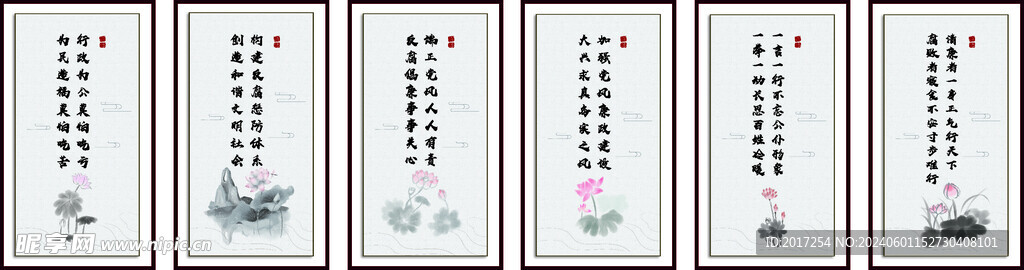 行政为公莫怕吃亏
为民造福莫怕吃苦
构建反腐惩防体系
创造和谐文明社会
端正党风人人有责
反腐倡廉事事关心
加强党风廉政建设
大兴求真务实之风
一言一行不忘公仆形象
一举一动长思百姓冷暖
清廉者一身正气行天下
腐败者寝食不安寸步难行
昵享网 www.nipic.cn
ID:2017254 NO:20240601152730408101